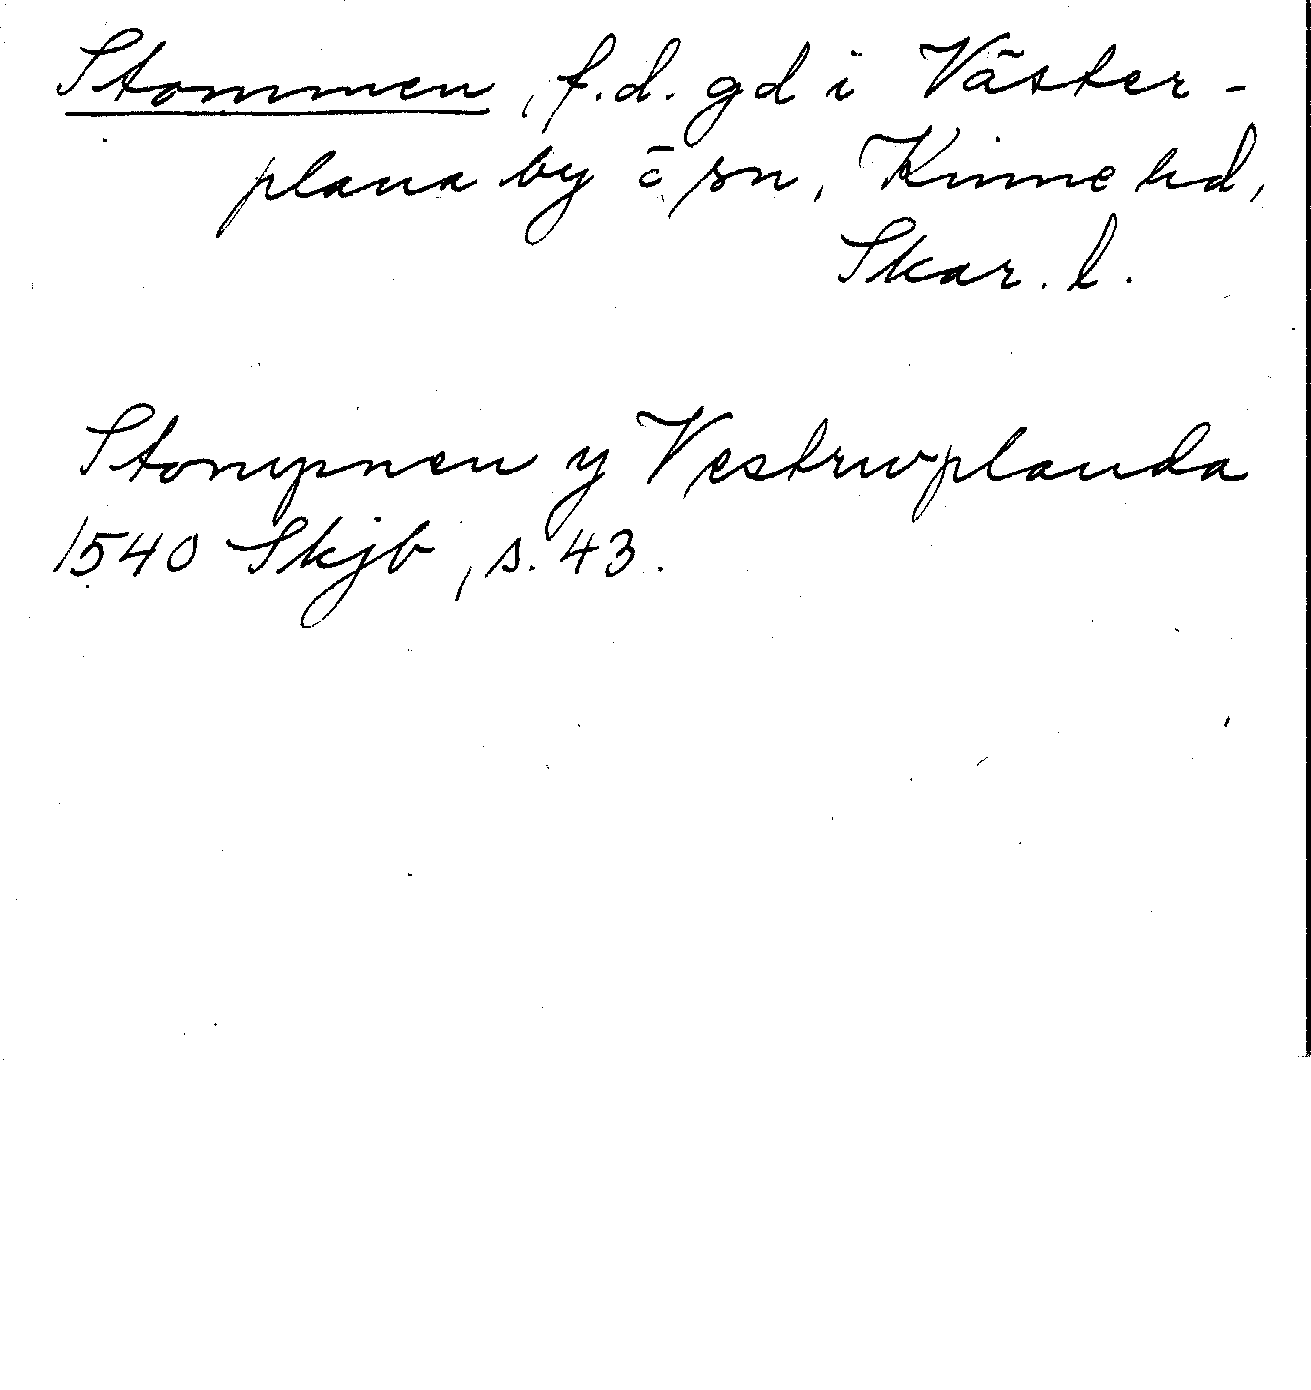 Stommen, f.d. gd i Väster-
plana by o sn, Kinne hd,
Skar. l.
Stompnen y Vestrwplanda
1540 Skjb, s. 43.